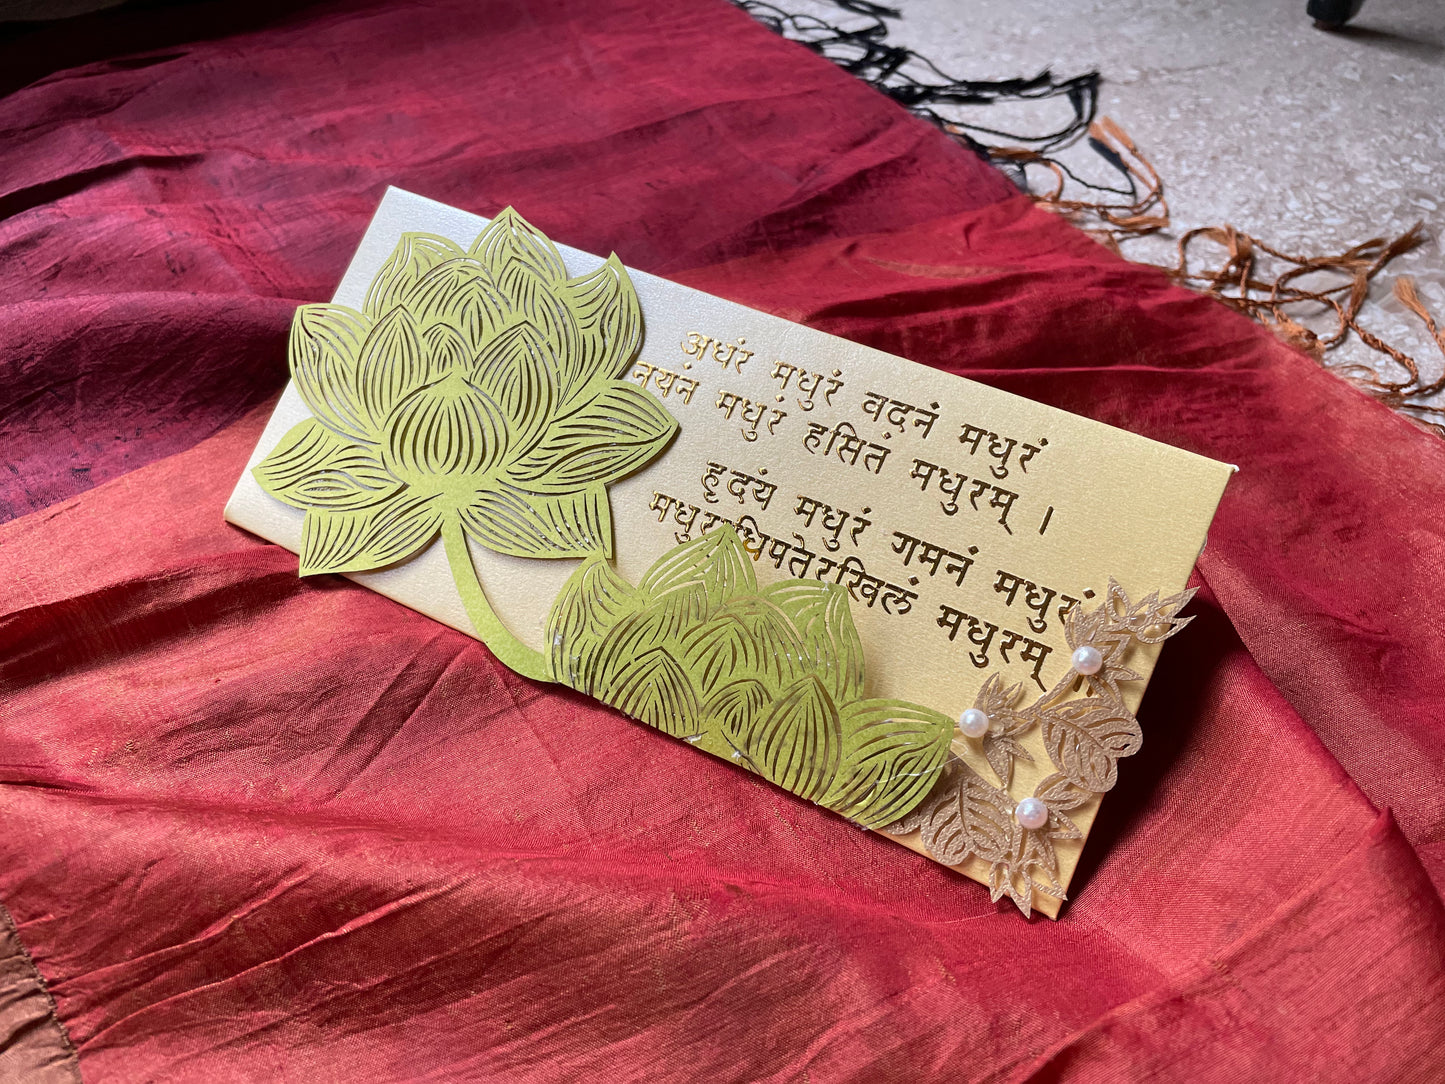 अधरं मधुरं वदनं मधुरं
नयनं मधुरं हसितं मधुरम् ।
हृदयं मधुरं गमनं मधुरं
मधुराधिपतेरखिलं मधुरम् ॥